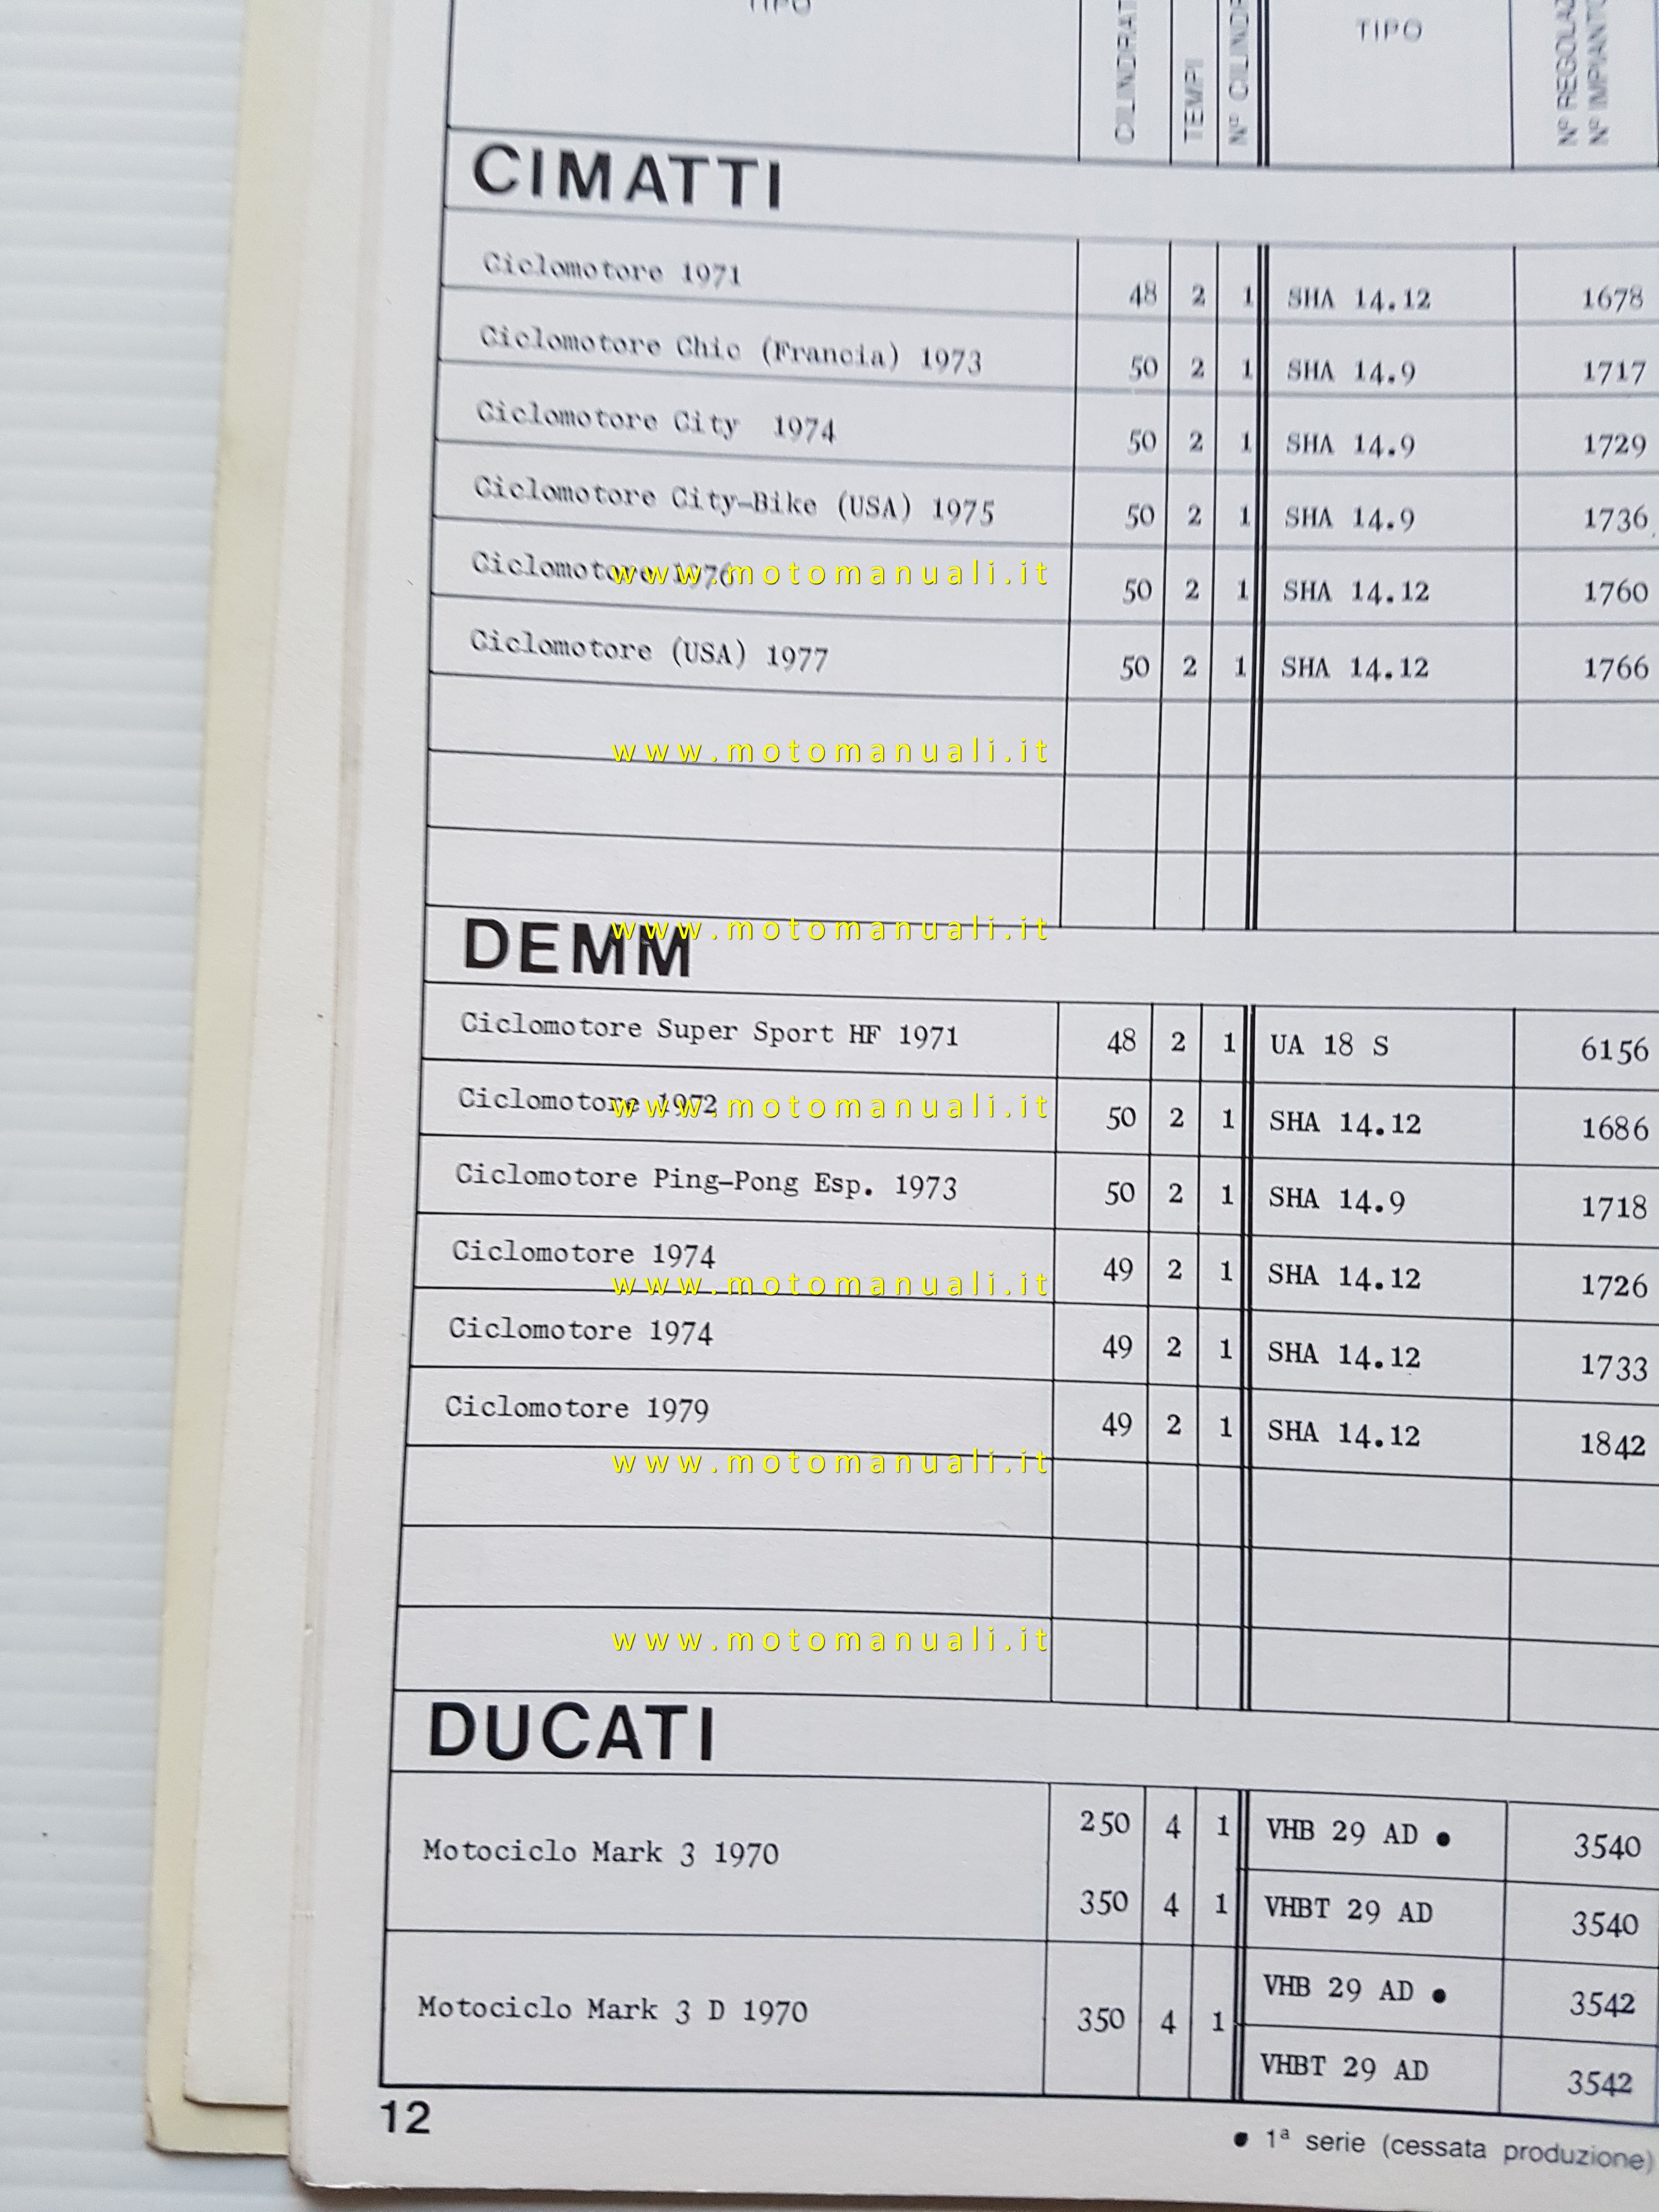 TIPO
TEMPI
TIPO
CIMATTI
Ciclomotore 1971 48 2 1 SHA 14.12 1678
Ciclomotore Chic (Francia) 1973 50 2 1 SHA 14.9 1717
Ciclomotore City 1974 50 2 1 SHA 14.9 1729
Ciclomotore City-Bike (USA) 1975 50 2 1 SHA 14.9 1736
Ciclomotore 1976 50 2 1 SHA 14.12 1760
www.motomanuali.it
Ciclomotore (USA) 1977 50 2 1 SHA 14.12 1766
www.motomanuali.it
www.motomanuali.it
DEMM
Ciclomotore Super Sport HF 1971 48 2 1 UA 18 S 6156
Ciclomotore 1972 50 2 1 SHA 14.12 1686
www.motomanuali.it
Ciclomotore Ping-Pong Esp. 1973 50 2 1 SHA 14.9 1718
Ciclomotore 1974 49 2 1 SHA 14.12 1726
www.motomanuali.it
Ciclomotore 1974 49 2 1 SHA 14.12 1733
Ciclomotore 1979 49 2 1 SHA 14.12 1842
www.motomanuali.it
www.motomanuali.it
DUCATI
Motociclo Mark 3 1970 250 4 1 VHB 29 AD ● 3540
350 4 1 VHBT 29 AD 3540
Motociclo Mark 3 D 1970 350 4 1 VHB 29 AD ● 3542
VHBT 29 AD 3542
12
● 1ª serie (cessata produzione)